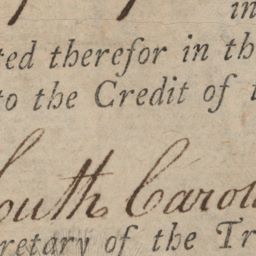 in
ted therefor in th
to the Credit of t
outh Caro
retary of the Tr